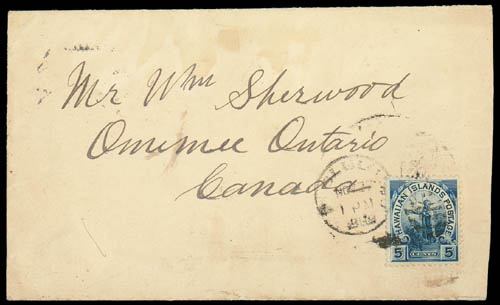 Mr Wm Sherwood
Omemee Ontario
Canada
1 PM
HAWAIIAN ISLANDS POSTAGE
5 CENTS 5